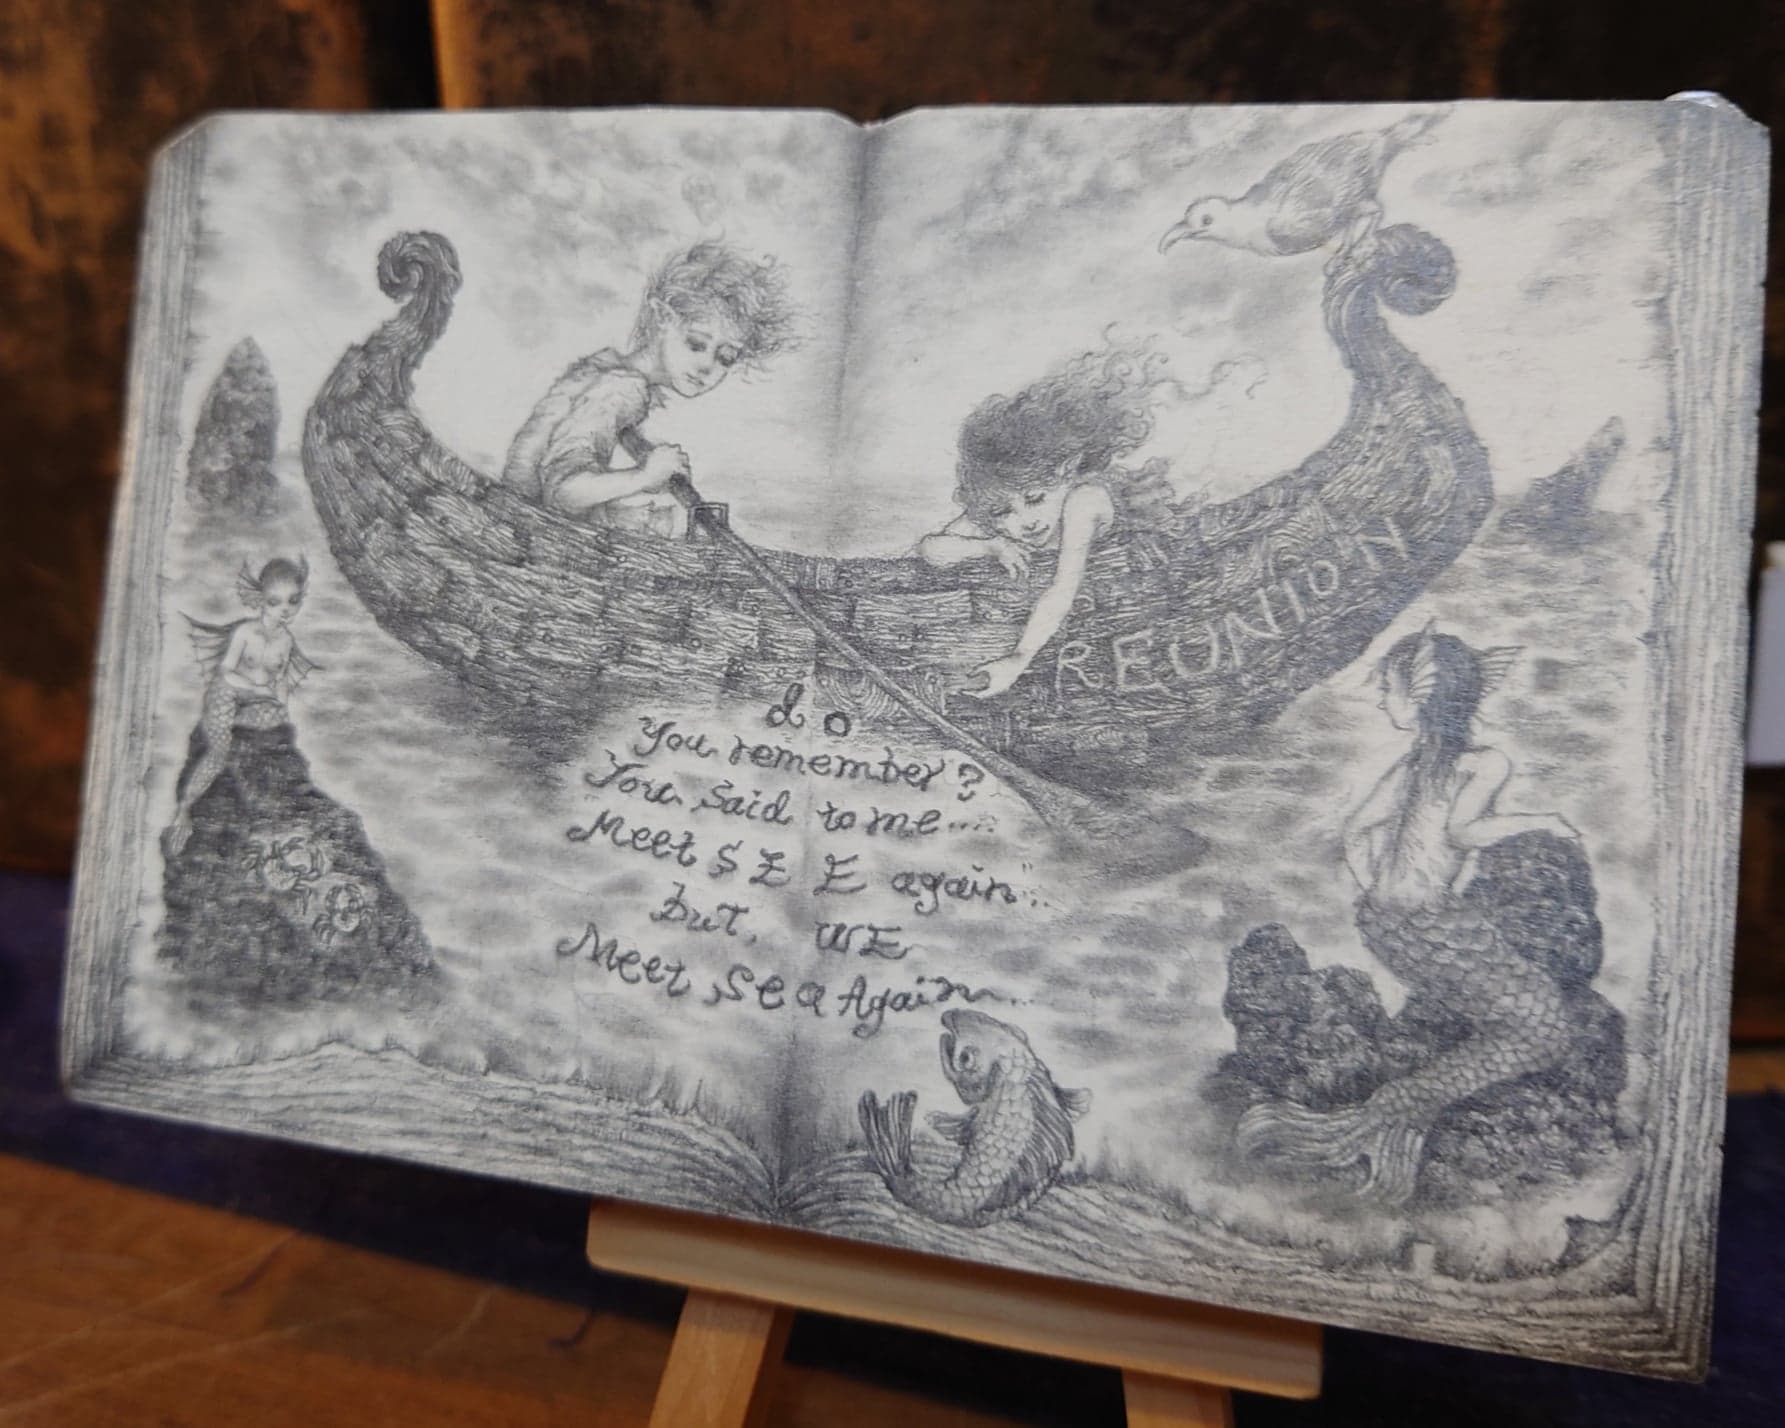 REUNION
do
You remember?
You said to me....
"Meet SEE again"...
but, WE
Meet, sea Again...